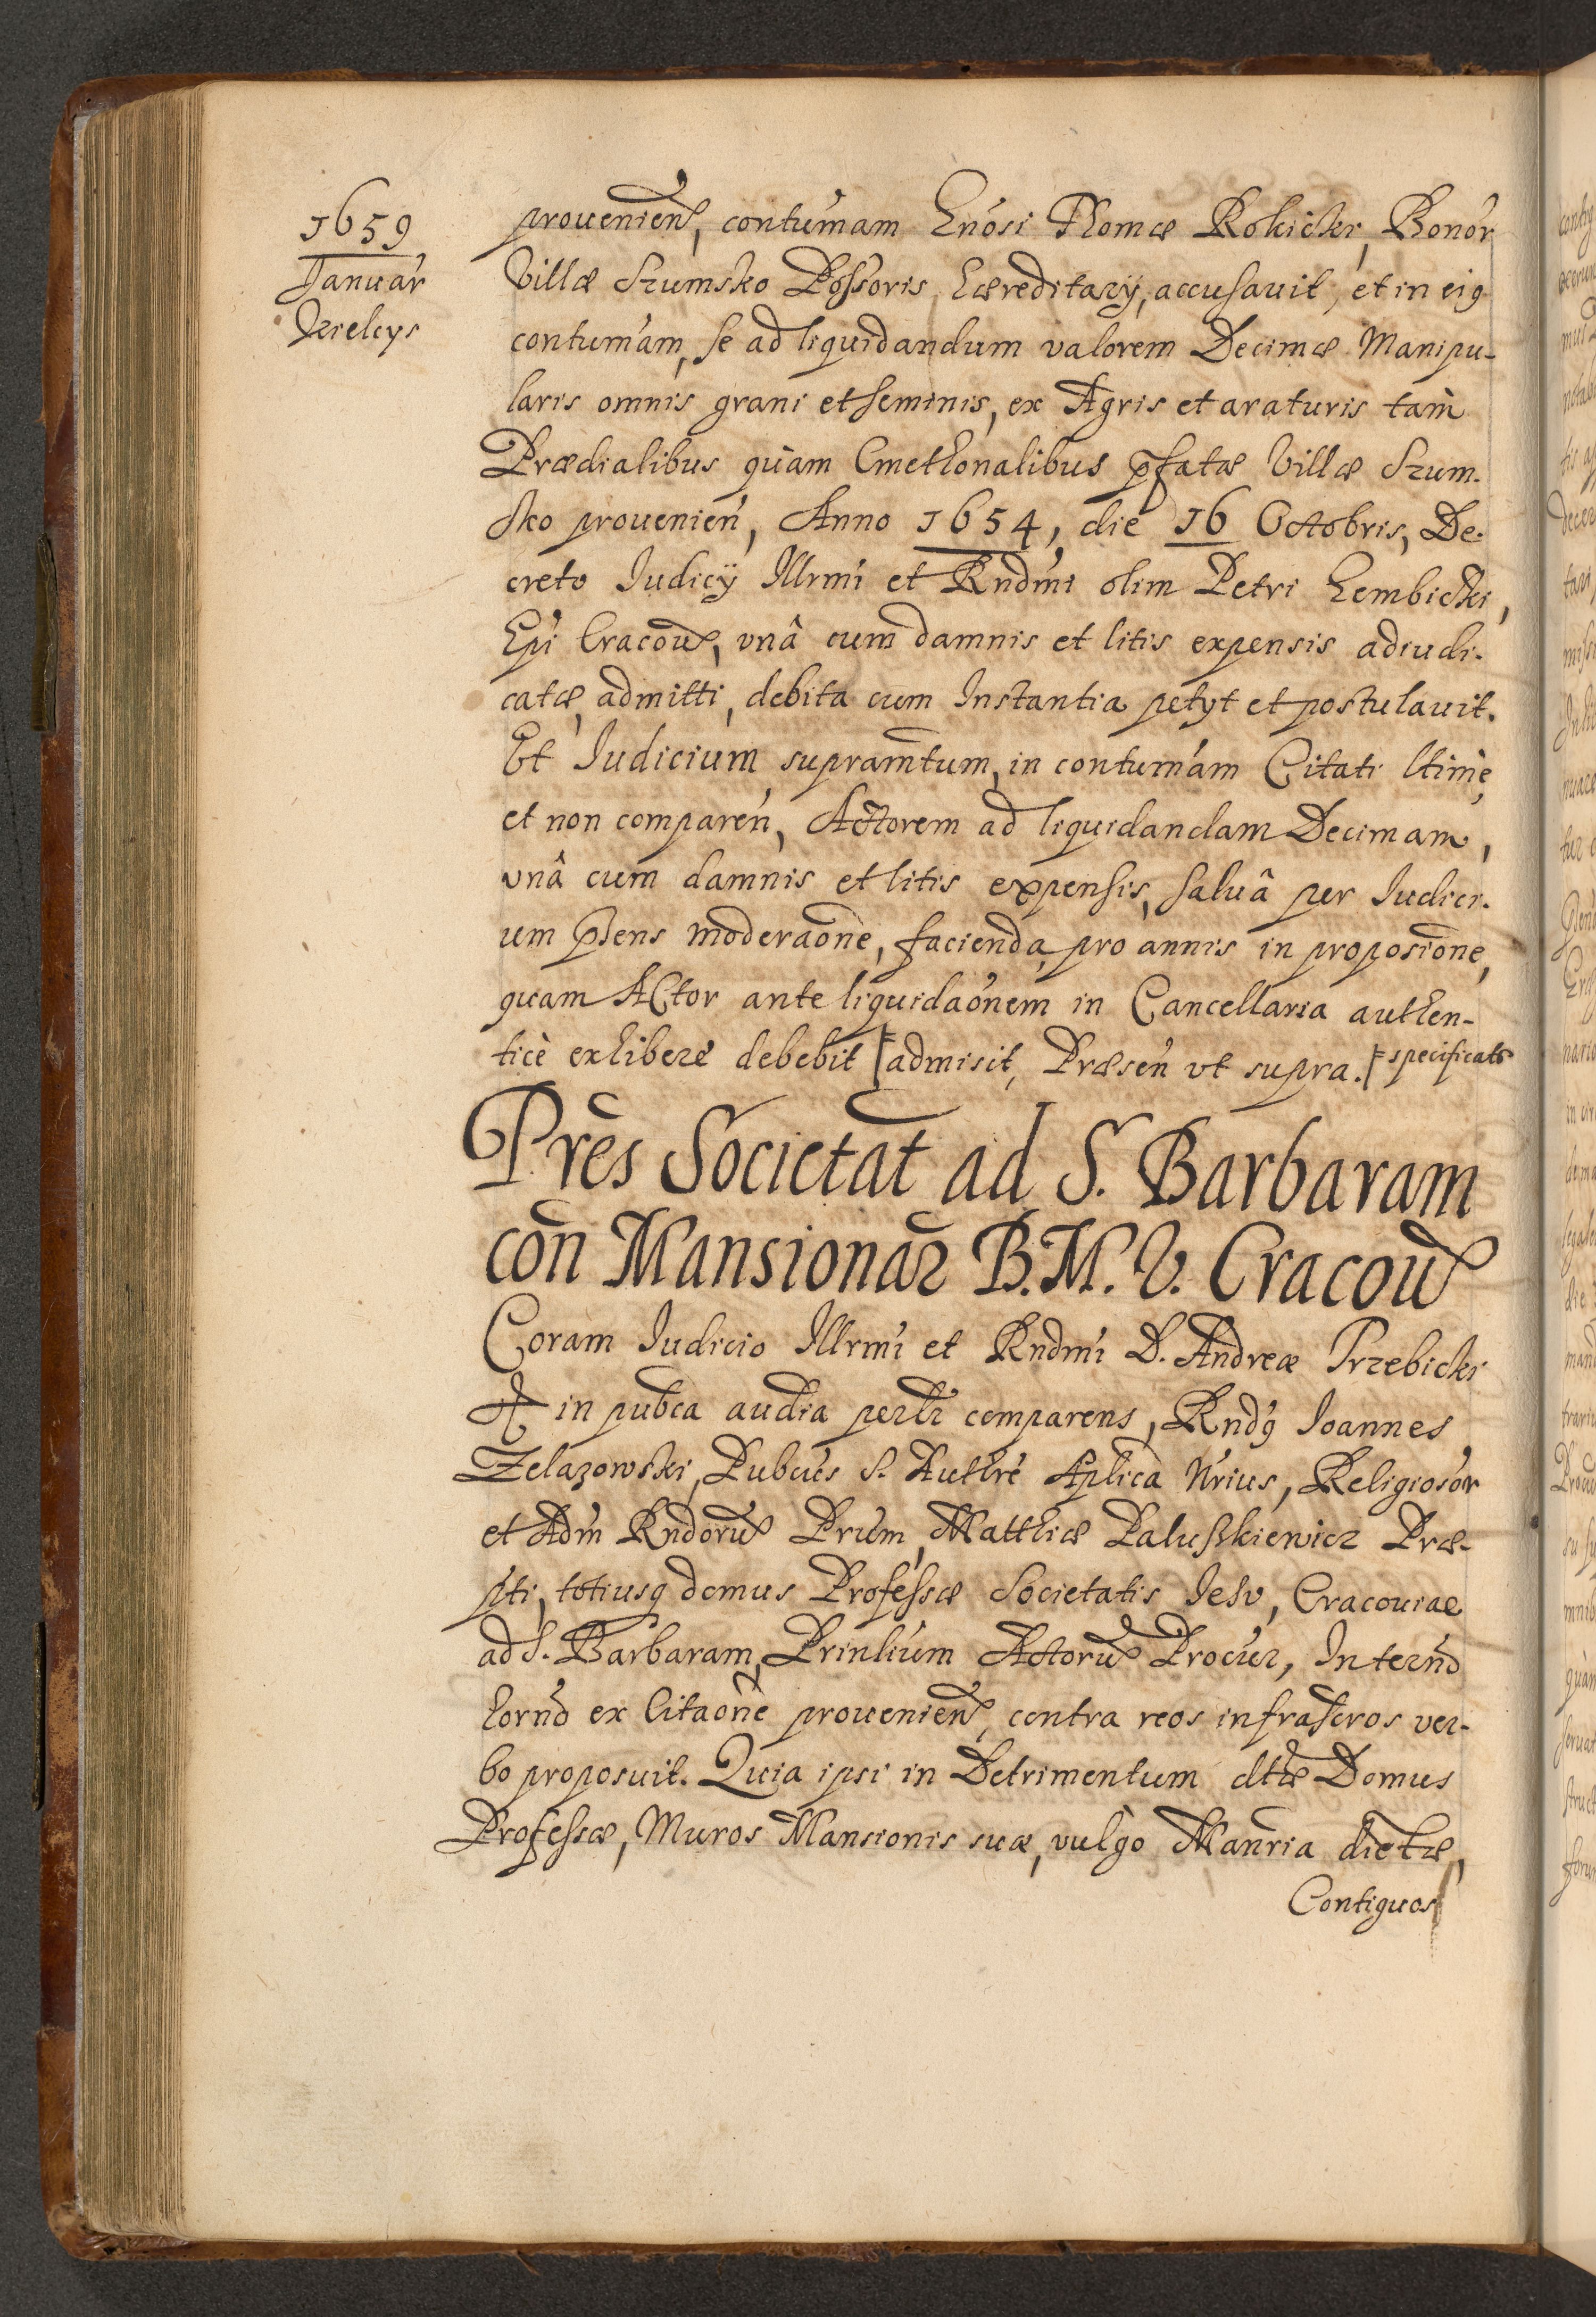 1659
Januar
Kielcys
prouenien, contumam Gnosi Thomæ Rokicki, Bonor
Villæ Szumsko Possoris hæreditarij, accusauit, et in eig
contumam, se ad liquidandum valorem Decimæ Manipu-
laris omnis grani et seminis, ex Agris et araturis tam
Prædialibus quam Cmethonalibus pfatæ Villæ Szum-
sko prouenien, Anno 1654, die 16 Octobris, De-
creto Iudicij Illrmi et Rndmi olim Petri Gembicki,
Epi Cracou, vnâ cum damnis et litis expensis adiudi-
catæ, admitti, debita cum Instantia petyt et postulauit.
Et Iudicium supramtum, in contumam Citati ltime
et non comparen, Actorem ad liquidandam Decimam,
vnâ cum damnis et litis expensis, saluâ per Iudici-
um psens moderaone, facienda, pro annis in proposione,
quam Actor ante liquidaonem in Cancellaria authen-
ticè exhibere debebit admisit, Præsen vt supra. specificato
Pres Societat ad S. Barbaram
con Mansionar B.M.V. Cracou
Coram Iudicio Illrmi et Rndmi D. Andreæ Trzebicki
in pubca audia perlr comparens, Rndg Ioannes
Zelazowski, Pubcus S. Authre Aplica Nrius, Religiosor
et Adm Rndoru Prum, Matthiæ Paluszkiewicz Præ-
pti, totiusq domus Professæ Societatis Iesv, Cracouiae
ad S. Barbaram, Prinlium Actoru Procur, In termo
hornо ex Citaone prouenien, contra reos infrascros ver-
bo proposuit. Quia ipsi in Detrimentum dtæ Domus
Professæ, Muros Mansionis suæ, vulgo Manria dictæ,
Contiguos